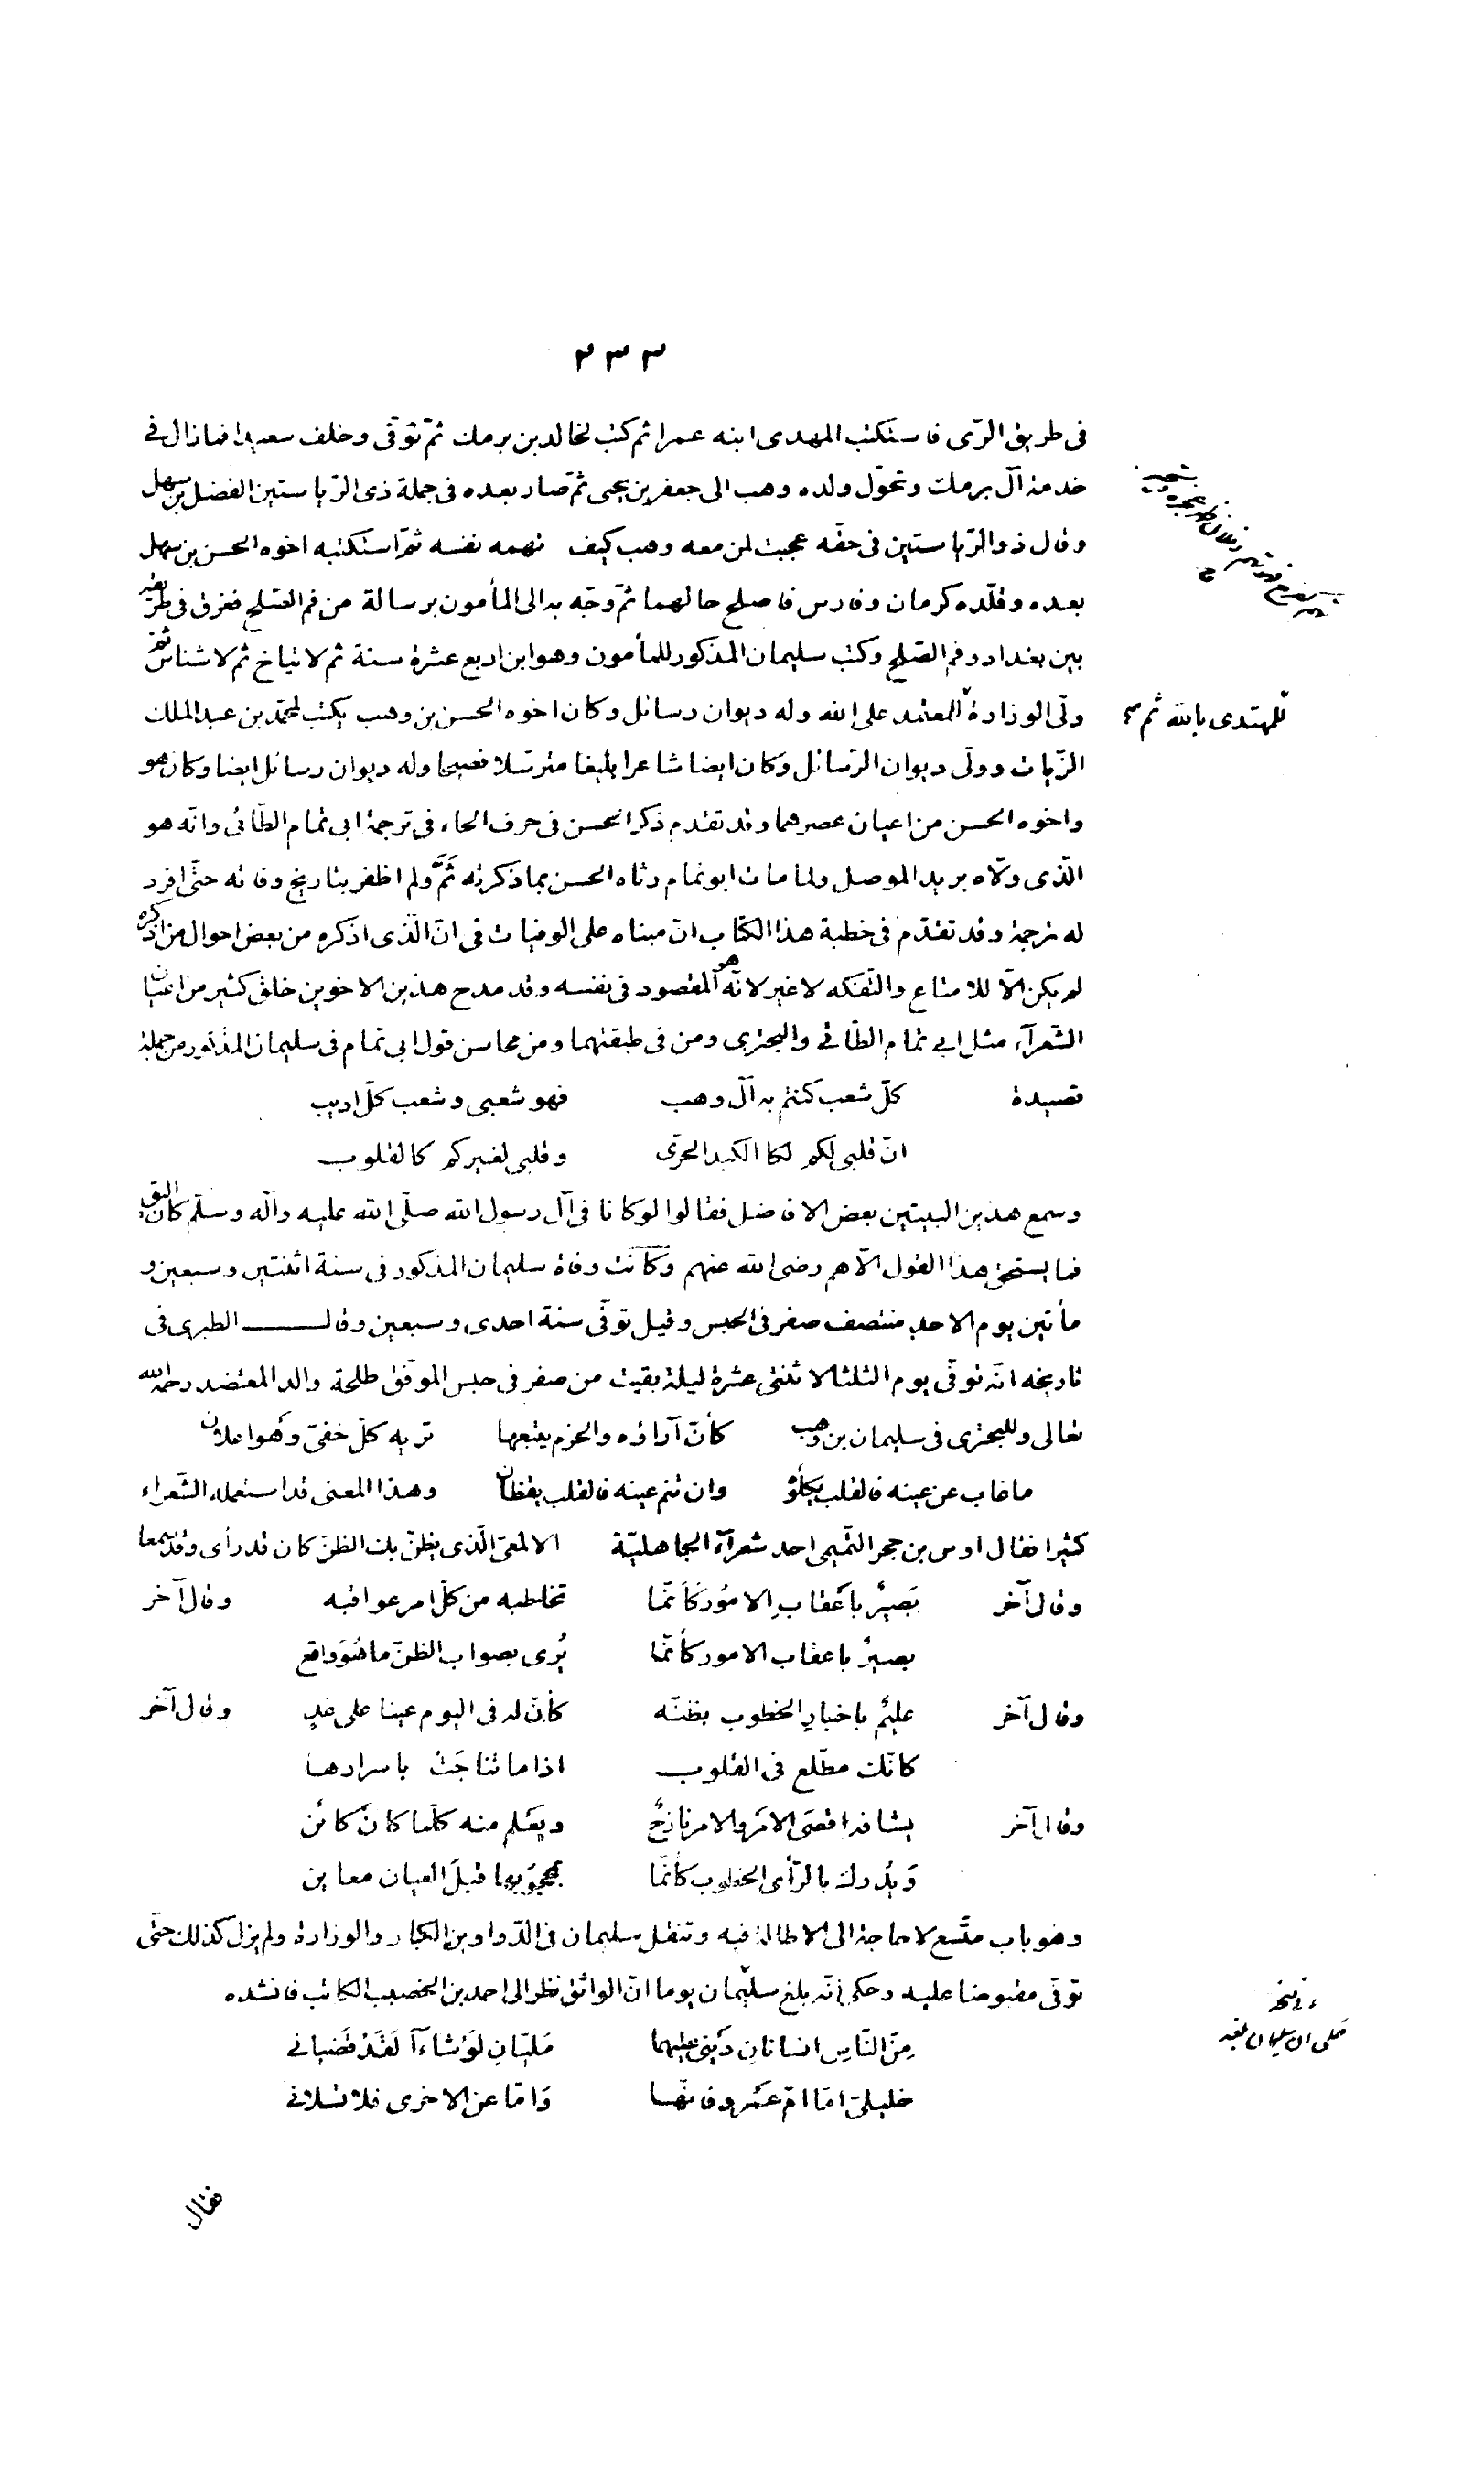 ٢٣٣
فى طريق الرّى فاستكتب المهدى ابنه عمرا ثم كتب لخالد بن برمك ثمّ توفّى وخلف سعيدا فما زال فى
خدمة آل برمك وتحوّل ولده وهب الى جعفر بن يحيى ثمّ صار بعده فى جملة ذى الرّياستين الفضل بن سهل
وقال ذو الرّياستين فى حقّه عجبت لمن معه وهب كيف تهمه نفسه ثمّ استكتبه اخوه الحسن بن سهل
بعده وقلّده كرمان وفارس فاصلح حالهما ثمّ وجّه به الى المأمون برسالة من فم الصّلح فغرق فى طريقه
بين بغداد وفم الصّلح وكتب سليمان المذكور للمأمون وهو ابن اربع عشرة سنة ثم لايتاخ ثم لاشناس ثمّ
ولّى الوزارة للمعتمد على الله وله ديوان رسائل وكان اخوه الحسن بن وهب يكتب لمحمّد بن عبد الملك
للمهتدى بالله ثم
الزّيات وولّى ديوان الرّسائل وكان ايضا شاعرا بليغا مترسّلا فصيحا وله ديوان رسائل ايضا وكان هو
واخوه الحسن من اعيان عصرهما وقد تقدم ذكر الحسن فى حرف الحاء فى ترجمة ابى تمام الطّائى وانّه هو
الّذى ولّاه بريد الموصل ولمّا مات ابو تمام رثاه الحسن بما ذكرته ثَمَّ ولم اظفر بتاريخ وفاته حتّى افرد
له ترجمة وقد تقدّم فى خطبة هذا الكتاب انّ مبناه على الوفيات فى انّ الّذى اذكره من بعض احوال من اذكره
لم يكن الّا للامتاع والتّفكه لا غير لانّه هو المقصود فى نفسه وقد مدح هذين الاخوين خلق كثير من اعيان
الشّعرآء مثل ابى تمام الطّائى والبحترى ومن فى طبقتهما ومن محاسن قول ابى تمام فى سليمان المذكور من جملة
قصيدة كلّ شعب كنتم به آل وهب فهو شعبى وشعب كلّ اديب
انّ قلبى لكم لكالكبد الحرّى وقلبى لغيركم كالقلوب
وسمع هذين البيتين بعض الافاضل فقالوا لو كانا فى آل رسول الله صلّى الله عليه وآله وسلّم كان اليق
فما يستحق هذا القول الّا هم رضى الله عنهم وكانت وفاة سليمان المذكور فى سنة اثنتين وسبعين و
مأتين يوم الاحد منتصف صفر فى الحبس وقيل توفّى سنة احدى وسبعين وقال الطبرى فى
تاريخه انّه توفّى يوم الثلثا لاثنتى عشرة ليلة بقيت من صفر فى حبس الموفّق طلحة والد المعتضد رحمه الله
تعالى وللبحترى فى سليمان بن وهب كأنّ آراؤه والحزم يتبعها تريه كلّ خفىّ وهو اعلان
ما غاب عن عينه فالقلب يكلؤه وان تنم عينه فالقلب يقظان وهذا المعنى قد استعمله الشّعراء
كثيرا فقال اوس بن حجر التّميمى احد شعرآء الجاهليّة الالمعىّ الّذى يظنّ بك الظنّ كان قد رأى وقد سمعا
وقال آخر بَصيرٌ بأَعقابِ الامُور كَأَنّما تخاطبه من كلّ امر عواقبه وقال آخر
بصيرٌ باعقاب الامور كأنّما يُرى بصواب الظنّ ما هُوَ واقع
وقال آخر عليمٌ باخبارِ الخطوب بظنّه كأنّ له فى اليوم عينا على غدِ وقال آخر
كانّك مطّلع فى القلوب اذا ما تناجَتْ باسرارها
وقال آخر يشاهد اقصَى الامرِ والامر نازحٌ ويَعلم منه كلّما كانَ كائن
وَيُدرك بالرّأى الخطوب كأنّما قبلَ العيان معاين
وهو باب متّسع لا حاجة الى الاطالة فيه وتنقل سليمان فى الدّواوين الكبار والوزارة ولم يزل كذلك حتّى
توفّى مقبوضا عليه وحكى انّه بلغ سليمان يوما انّ الواثق نظر الى احمد بن الخصيب الكاتب فانشده
مِنَ النّاسِ انسانانِ دَيْنى عليهما مَليّانِ لَوْ شاءَآ لَقَدْ قَضيانى
خليلىّ امّا امّ عَمْرو فانّها وَامّا عن الاخرى فلا تسلانى
فقال